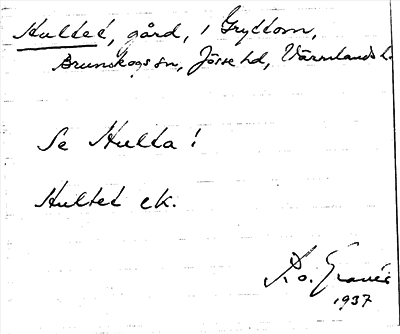 Hultet, gård, i Gryttom,
Brunskogs sn, Jösse hd, Värmlands l.
Se Hulta!
Hultet ek.
1937